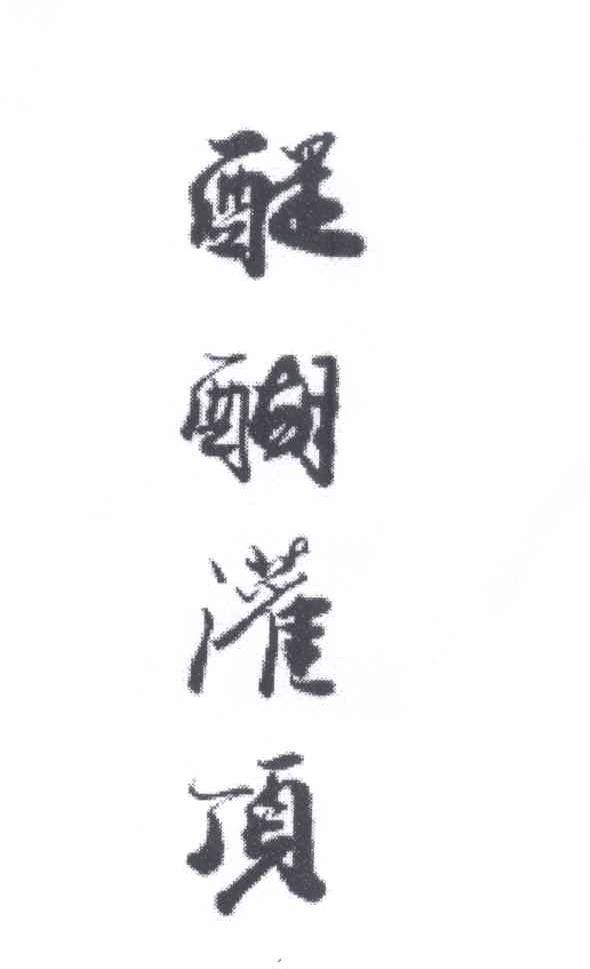 醍醐灌頂